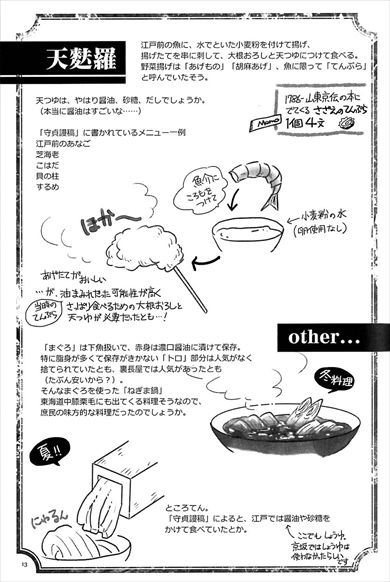 天麩羅
江戸前の魚に、水でといた小麦粉を付けて揚げ、
揚げたてを串に刺して、大根おろしと天つゆにつけて食べる。
野菜揚げは「あげもの」「胡麻あげ」、魚に限って「てんぷら」
と呼んでいたそう。
天つゆは、やはり醤油、砂糖、だしでしょうか。
(本当に醤油はすごいな……)
Memo
1786-山東京伝の本に
でてくる さざえのてんぷら
1個4文
「守貞謾稿」に書かれているメニュー一例
江戸前のあなご
芝海老
こはだ
貝の柱
するめ
魚介に
ころもを
つけて
小麦粉の水
(卵使用なし)
ほか〜
あげたてがおいしい
…が、油まみれだった可能性が高く
当時の
てんぷら
さっぱり食べるための大根おろしと
天つゆが必要だったとも…!
other...
「まぐろ」は下魚扱いで、赤身は濃口醤油に漬けて保存。
特に脂身が多くて保存がきかない「トロ」部分は人気がなく
捨てられていたとも、裏長屋では人気があったとも
(たぶん安いから?)。
そんなまぐろを使った「ねぎま鍋」
東海道中膝栗毛にも出てくる料理そうなので、
庶民の味方的な料理だったのでしょうか。
冬料理
夏!!
にゅるん
ところてん。
「守貞謾稿」によると、江戸では醤油や砂糖を
かけて食べていたとか。
ここでもしょうゆ。
京坂ではしょうゆは
使わなかったらしいです
13